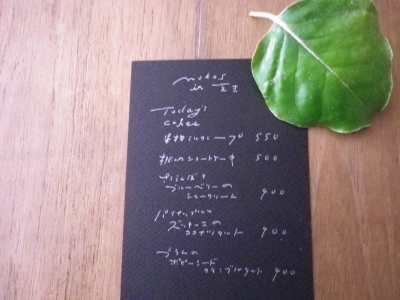 Today's
cakes
550
桃のショートケーキ 500
さくらんぼと
ブルーベリーの
シュークリーム 400
パイナップルと
ズッキーニの
ココナツタルト 400
プラムの
ポピーシード
クランブルタルト 400